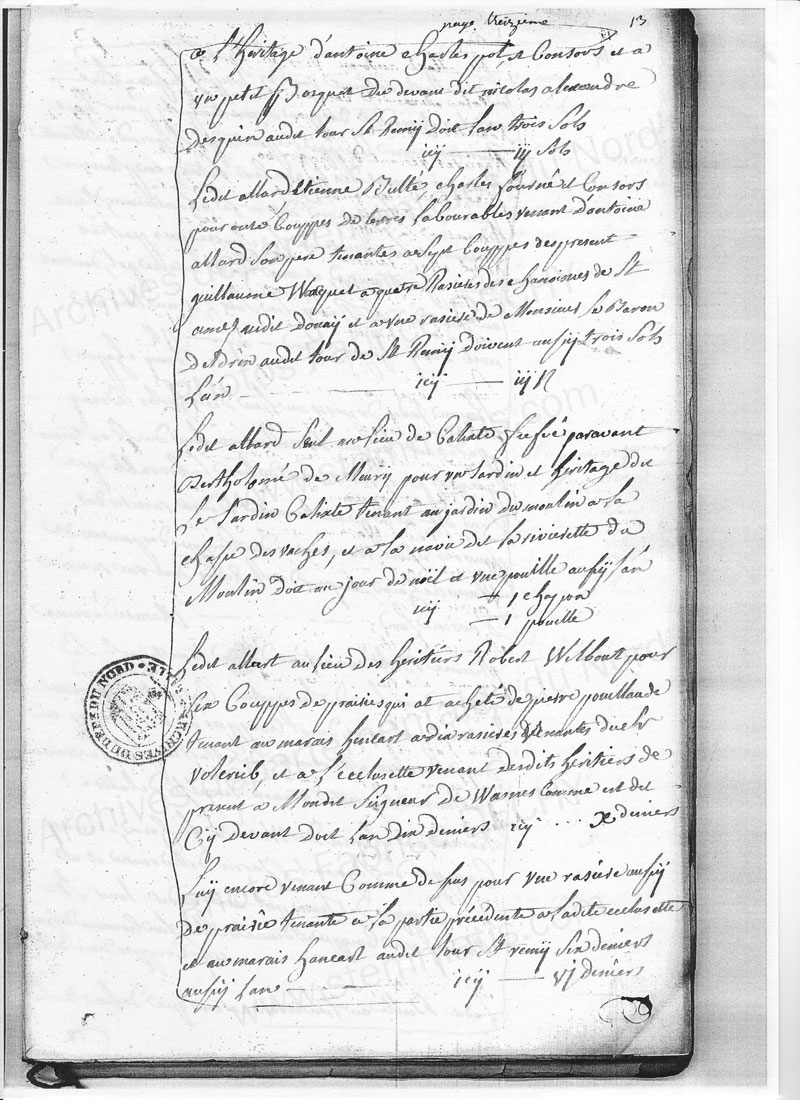 page treizieme 13
a L'heritage d'antoine charles pot et Consors et a
vn petit Bosquet du devant dit nicolas alexandre
desquien audit jour St Remÿ doit Lan trois Sols
icÿ iij Sols
Ledit allard etienne Bulté, charles fourné et Consors
pour onze Couppes de terres Labourables venant d'antoine
allard Son pere tenantes a Sept Couppes des present
guillaume Waquet a quatre Rasieres des chanoines de St
amé audit douaÿ et a vne rasiere de Monsieur Le Baron
audit jour de St Remÿ doivent aussÿ trois Sols
L'an icÿ iij
Ledit allard Seul au lieu de Calixte paravant
Bertholomé de Maurÿ pour vn Jardin et heritage dit
Le Jardin Calixte tenant au jardin du moulin a la
chasse des vaches, et a la navie dit la rivierette du
Moulin doit au jour de noël et vne pouille aussÿ L'an
icÿ 1 chappon
1 pouille
Ledit allart au lieu des heritiers Robert Wilbout pour
Six Couppes de prairies qui at acheté de pierre pouillaude
tenant au marais hancart a dix rasieres venantes du Sr
et a L'eclusette venant desdits heritiers de
present a Mondit Seigneur de Wasnes Comme est dit
Cÿ devant doit Lan dix deniers icÿ x deniers
Luÿ encore venant Comme dessus pour vne rasiere aussÿ
de prairie tenante a la partie précédente a Ladite eclusette
et au marais hancart audit jour St remÿ Six deniers
aussÿ Lan icÿ vj deniers
ARCHIVES DU DEPT DU NORD